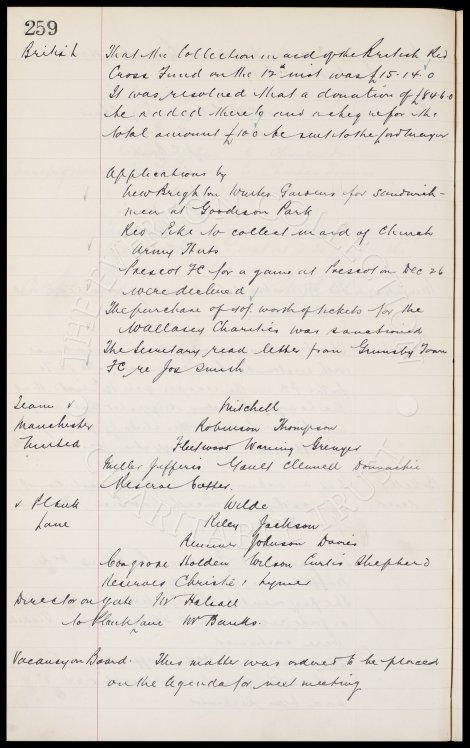 259
British That the Collection in aid of the British Red
Cross Fund on the 12th inst was £15.14.0
It was resolved that a donation of £84.6.0
be added thereto and a cheque for the
total amount £100 be sent to the Lord Mayor
Applications by
New Brighton Winter Gardens for sandwich-
men at Goodison Park
Rev Pike to collect in aid of Church
Army Huts
Prescot FC for a game at Prescot on Dec 26
were declined
The purchase of worth of tickets for the
Wallasey Charities was sanctioned
The Secretary read letter from Grimsby Town
FC re Jos Smith
Team v Mitchell
Manchester Robinson Thompson
United Fleetwood Wareing Grenyer
Miller Jefferis Gault Clennell Donnachie
Reserve
v Plank Wilde
Lane Riley Jackson
Johnson Davies
Cosgrove Holden Wilson Curtis Shepherd
Reserves Christie
Director on gate Mr Halsall
to Plank Lane Mr Banks.
Vacancy on Board. This matter was ordered to be placed
on the Agenda for next meeting